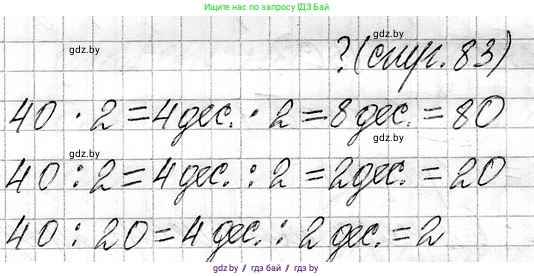 Ищите нас по запросу ГДЗ БАЙ
gdz.by
gdz.by
? (стр. 83)
40 · 2 = 4 дес. · 2 = 8 дес. = 80
gdz.by
gdz.by
40 : 2 = 4 дес. : 2 = 2 дес. = 20
40 : 20 = 4 дес. : 2 дес. = 2
gdz.by / гдз бай / gdz.by